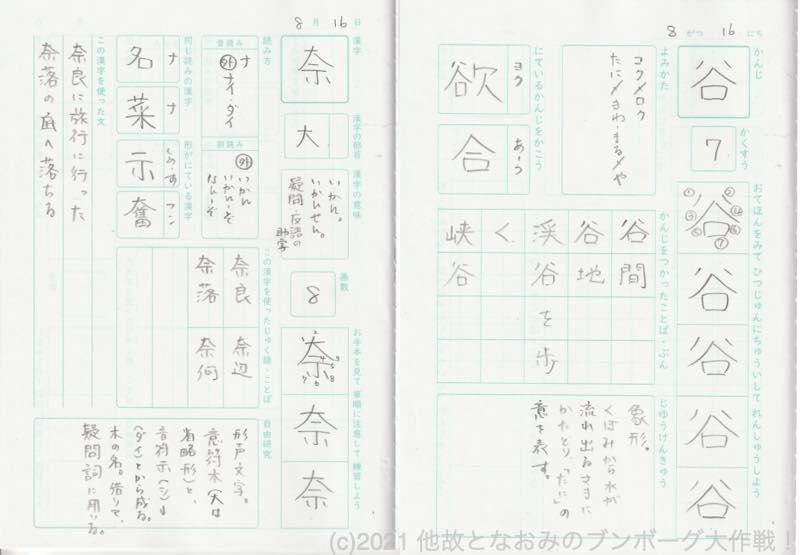 8がつ16にち
かんじ
谷
かくすう
7
おてほんをみて ひつじゅんにちゅういして れんしゅうしよう
谷
谷
谷
谷
谷
よみかた
コク〆ロク
たに〆きわ-まる〆や
にているかんじをかこう
欲
ヨク
合
あ-う
かんじをつかったことば・ぶん
谷間
谷地
渓谷を歩
く
峡谷
じゆうけんきゅう
象形。
くぼみから水が
流れ出るさまに
かたどり、「たに」の
意を表す。
8月16日
漢字
奈
漢字の部首
大
漢字の意味
いかん。
いかんせん。
疑問・反語の
助字
画数
8
お手本を見て 筆順に注意して 練習しよう
奈
奈
奈
読み方
音読み
ナ
外 ナイ・ダイ
訓読み
外 いかん
いかん-ぞ
なん-ぞ
同じ読みの漢字
名
ナ
菜
ナ
形がにている漢字
示
しめ-す
奮
フン
この漢字を使ったじゅく語・ことば
奈良
奈辺
奈落
奈何
この漢字を使った文
奈良に旅行に行った
奈落の底へ落ちる
自由研究
形声文字。
意符木(大は
省略形)と、
音符示(シ)↓
(ダイ)とから成る。
木の名。借りて、
疑問詞に用いる。
(c)2021 他故となおみのブンボーグ大作戦！